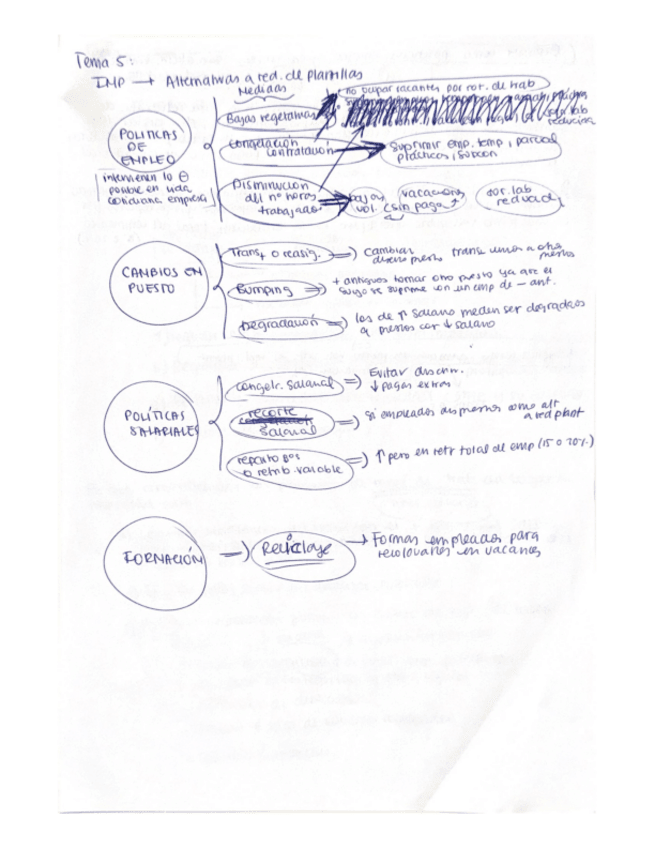 Tema 5:
IMP → Alternativas a red. de plantillas
Medidas
no ocupar vacantes por rot. de trab
Bajas vegetativas
POLITICAS
DE
EMPLEO
congelación
contratación
suprimir emp. temp, parcial
prácticas, subcon
intervienen lo ⊖
posible en vida
cotidiana empresa
Disminución
del nº horas
trabajadas
bajas
vol.
vacaciones
sin paga ↑
jor. lab
reducida
CAMBIOS EN
PUESTO
Transf o reasig. ⇒ cambiar
trans unos a otros
puestos
Bumping ⇒ + antiguos tomar otro puesto ya que el
suyo se suprime con un emp de - ant.
Degradación ⇒ los de ↑ salario pueden ser degradados
a puestos con ↓ salario
POLÍTICAS
SALARIALES
congelc. salarial ⇒ Evitar
↓ pagas extras
recorte
salarial
⇒ si empleados dispuestos como alt
a red plant
reparto Bºs
o retrib. variable
⇒ ↑ pero en retr total de emp (15 o 20%)
FORMACIÓN → Reciclaje → Formar empleados para
recolocarles en vacantes